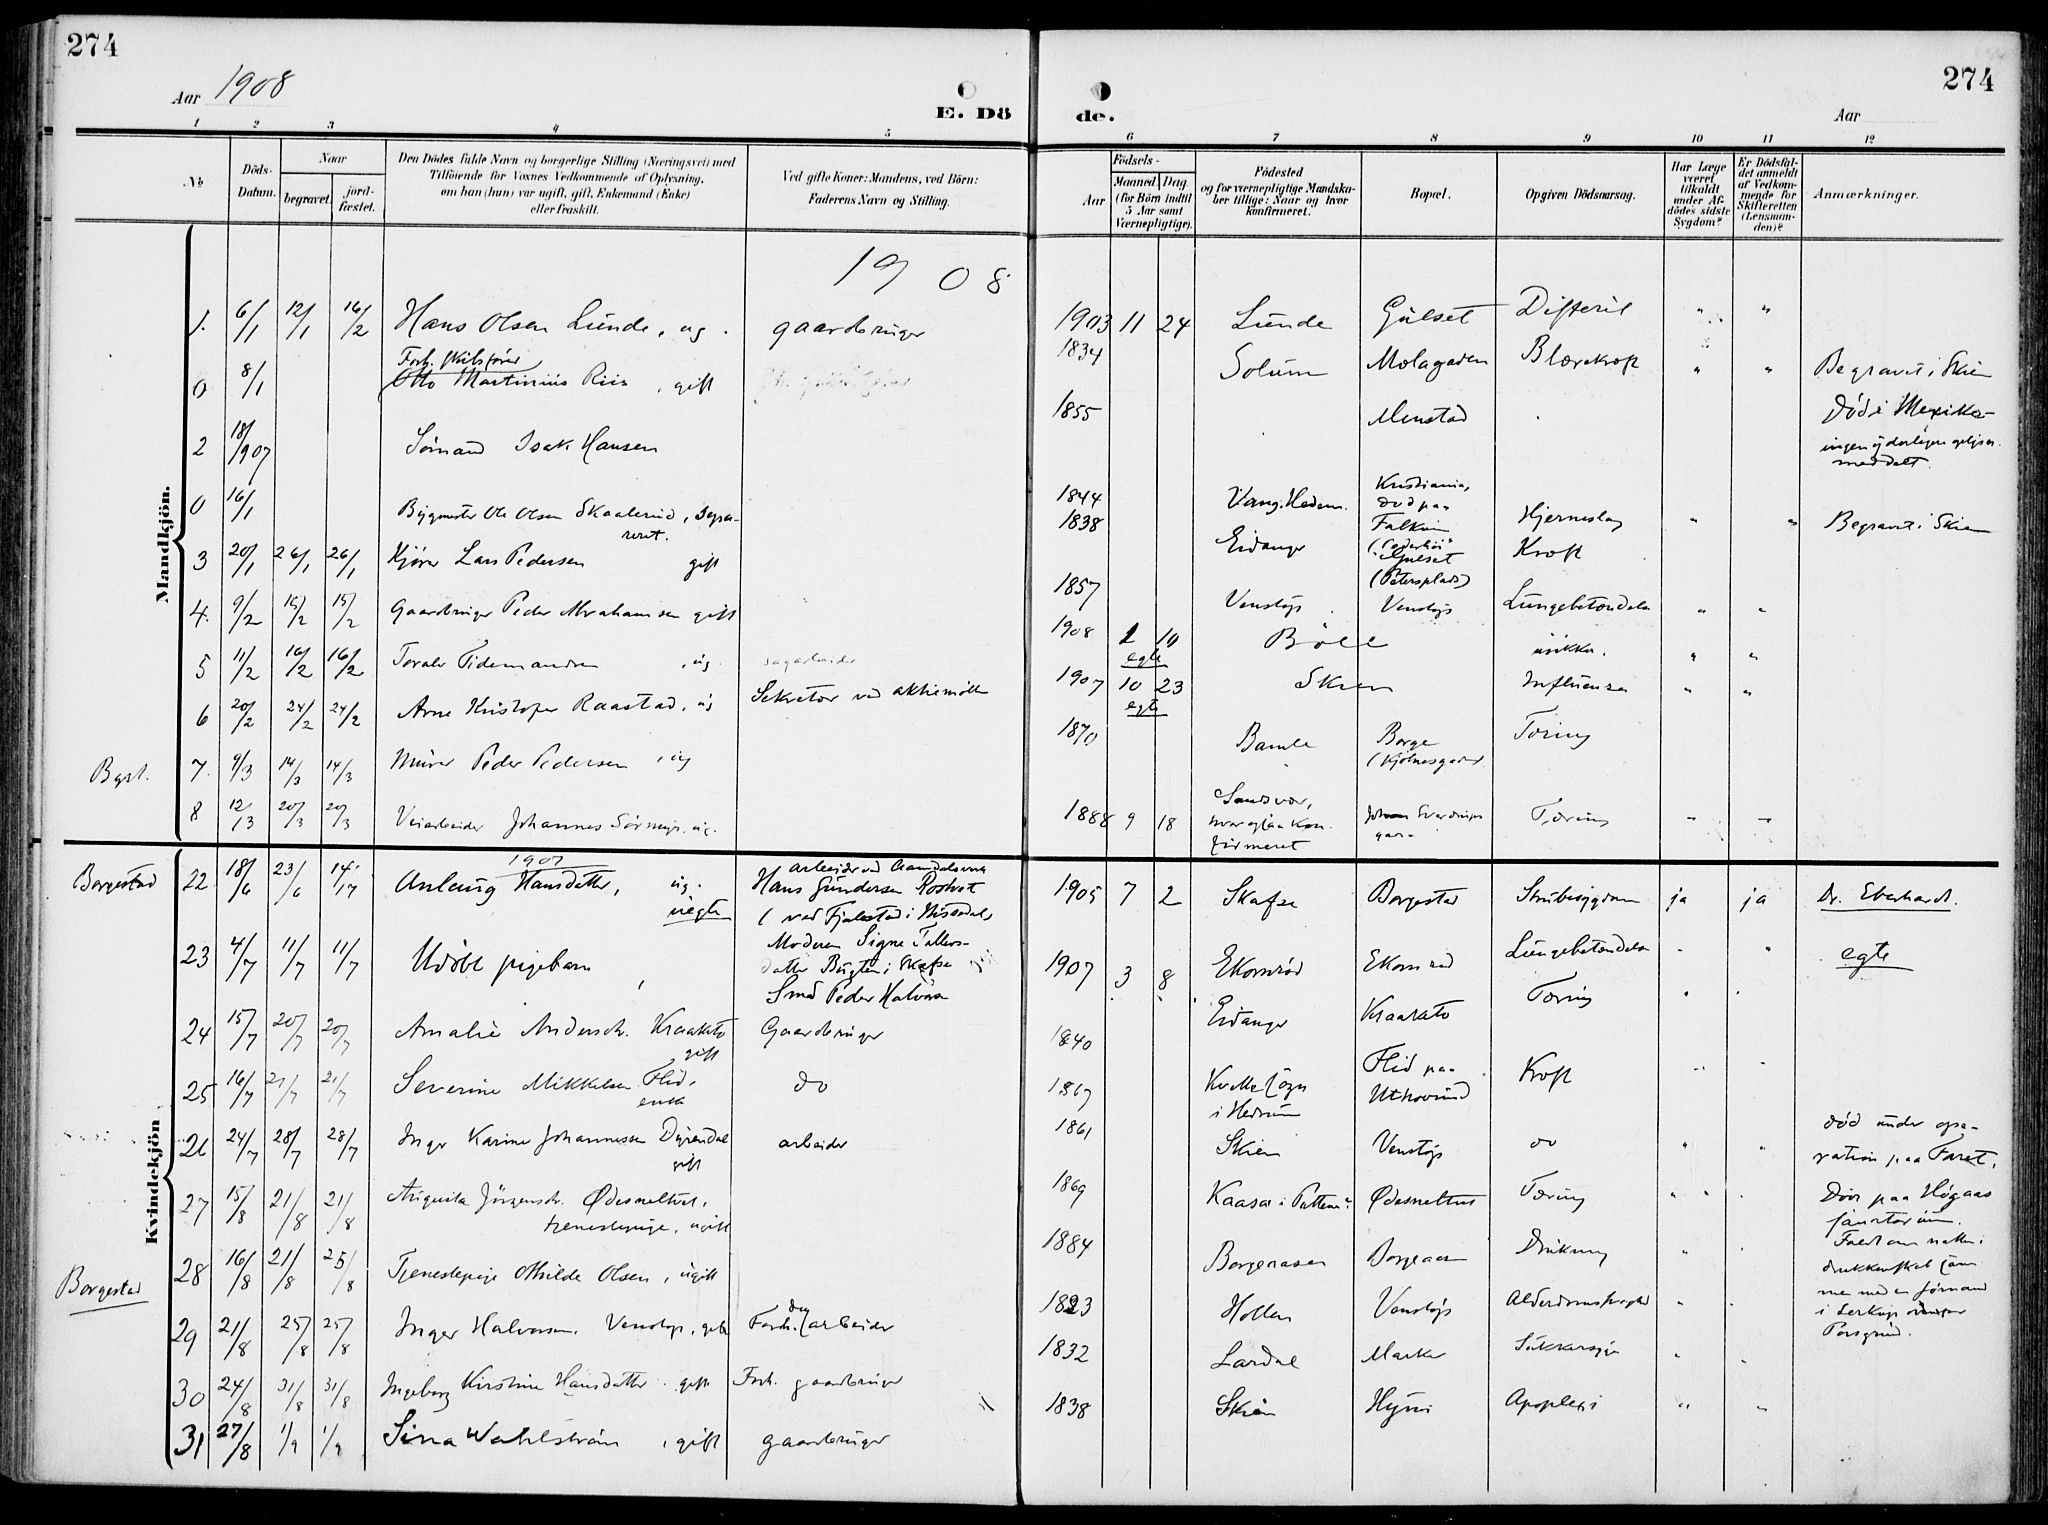 274
274
Aar 1908
E. Dö
de.
Aar
1 2 3 4 5 6 7 8 9 10 11 12
No
Döds-
Datum.
Naar
begravet.
jord-
fæstet.
Den Dödes fulde Navn og borgerlige Stilling (Næringsvei) med
Tilföiende for Voxnes Vedkommende af Oplysning,
om han (hun) var ugift, gift, Enkemand (Enke)
eller fraskilt.
Ved gifte Koner: Mandens, ved Börn:
Faderens Navn og Stilling.
Födsels-
Aar
Maaned Dag
(for Börn indtil
5 Aar samt
Værnepligtige).
Födested
og for værnepligtige Mandska-
ber tillige: Naar og hvor
konfirmeret.
Bopæl.
Opgiven Dödsaarsag.
Har Læge
været
tilkaldt
under Af-
dödes sidste
Sygdom?
Er Dödsfal-
det anmeldt
af Vedkom-
mende for
Skifteretten
(Lensman-
den)?
Anmærkninger.
Mandkjön.
1908
1. 6/1 12/1 16/2 Hans Olsen Lunde, ug. gaardbruger 1903 11 24 Lunde Gulset Difterit " "
0 8/1 Forh.
Otto Martinius Riis, gift 1834 Solum Molagaden Blærekræft " " Begravet i Skien
2 18/907 Sömand Isak Hansen 1855 Menstad Död i Mexiko
ingen
meddelt.
0 16/1 Bygmester Ole Olsen Skaalerud, sepa-
reret. 1844 Vang. Hedem. Kristiania,
död paa
Falkum Hjerneslag " " Begravet i Skien
3 20/1 26/1 26/1 Kjörer Lars Pedersen gift 1838 Eidanger Gulset
(Petersplads) Kræft
4. 9/2 15/2 15/2 Gaardbruger Peder Abrahamsen gift 1857 Venstöp Venstöp Lungebetændelse " "
5 11/2 16/2 16/2 Toralv Tidemandsen, ug. sagarbeider 1908 1 10
egte Böle usikker. " "
6 20/2 24/2 24/2 Arne Kristofer Raastad, ug Sekretær ved aktiemölle 1907 10 23
egte Skien Influenza " "
Bgst. 7. 9/3 14/3 14/3 Murer Peder Pedersen, ug 1870 Bamle Borge
(Kjölnesgaard Tæring
8 12/3 20/3 20/3 Veiarbeider Johannes ug. 1888 9 18 Sandsvær,
hvor ogsaa kon-
firmeret Tæring " "
Kvindekjön
1907
Borgestad 22 18/6 23/6 14/17 Anlaug Hansdatter, ug.
uegte
Hans Gundersen
(ved Fjalestad i Nissedal,
Moderen Signe Tallevs-
datter Bugten i Skafse 1905 7 2 Skafse Borgestad Strubesygdom ja ja Dr. Eberhardt.
23 4/7 11/7 11/7 Udöbt pigebarn, Smed Peder Halvorsen 1907 3 8 Ekornröd Ekornröd Lungebetændelse " " egte
24 15/7 20/7 20/7 Amalie Andersdr. Kraakstö
gift Gaardbruger 1840 Eidanger Kraakstö Tæring " "
25 16/7 21/7 21/7 Severine Mikkelsen Flid,
enke do 1867
i Hedrum Flid paa
Kræft " "
26 24/7 28/7 28/7 Inger Karine Johannessen Dyrendal
gift arbeider 1861 Skien Venstöp do " " död under ope-
ration paa Faret.
27 15/8 21/8 21/8 Augusta Jörgensdr. Ödesneltvet,
tjenestepige, ugift 1869 Kaasa i Ödesneltvet Tæring " " Död paa Högaas
sanatorium.
Borgestad 28 16/8 21/8 25/8 Tjenestepige Othilde Olsen, ugift 1884 Borgeaasen Borgeaasen Drukning " Faldt om natten i
drukkenskab sam-
men med en sömand
i ovenfor
Porsgrund.
29 21/8 25/8 25/8 Inger Halvorsen. Venstöp, gift Forh. arbeider 1823 Hollen Venstöp Alderdomssvaghed " "
30 24/8 31/8 31/8 Ingeborg Kirstine Hansdatter, gift Forh. gaardbruger 1832 Lardal Marker Sukkersyge " "
31 27/8 1/9 1/9 Sina Wahlström, gift gaardbruger 1838 Skien Hyni Apoplexi " "